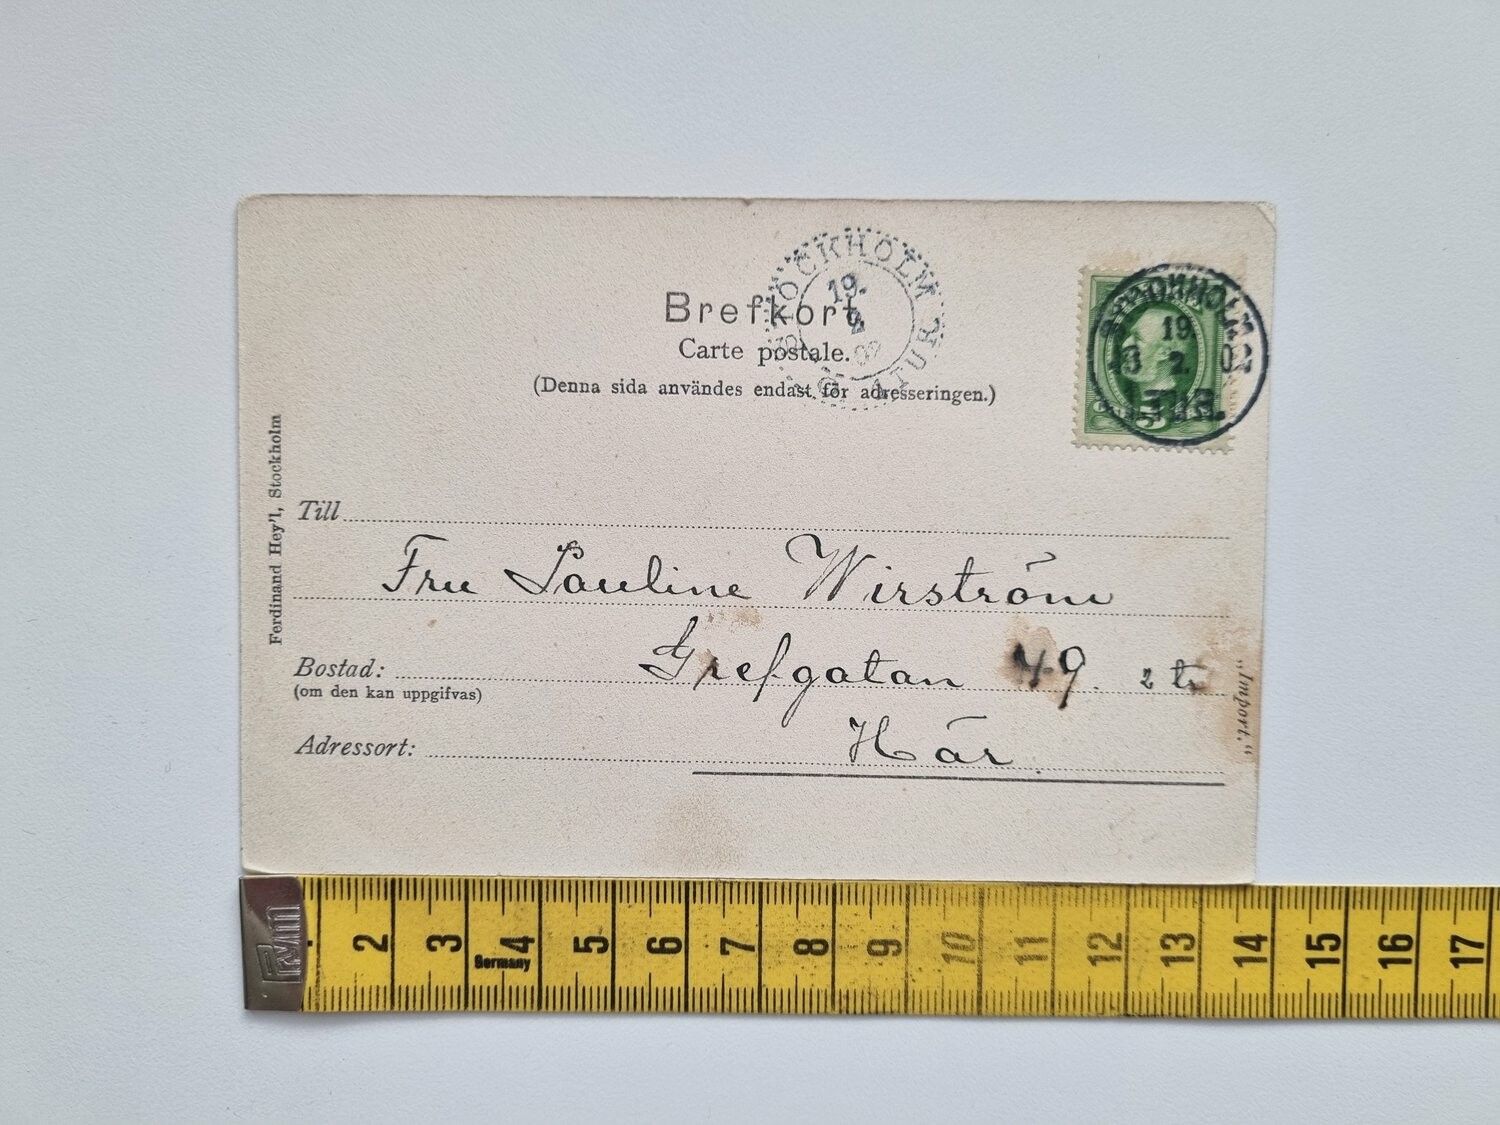 STOCKHOLM
19.
2
02
3 TUR
Brefkort
Carte postale.
(Denna sida användes endast för adresseringen.)
19.
2. 02
TUR.
Ferdinand Hey'l, Stockholm
Till
Fru Pauline Wirström
Bostad: Grefgatan 49. 2 tr
(om den kan uppgifvas)
Adressort: Här.
"Import."
Germany
2 3 4 5 6 7 8 9 10 11 12 13 14 15 16 17